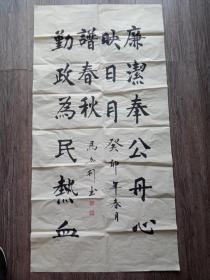 廉潔奉公丹心
映日月
譜春秋
勤政為民熱血
癸卯年春月
馬
書